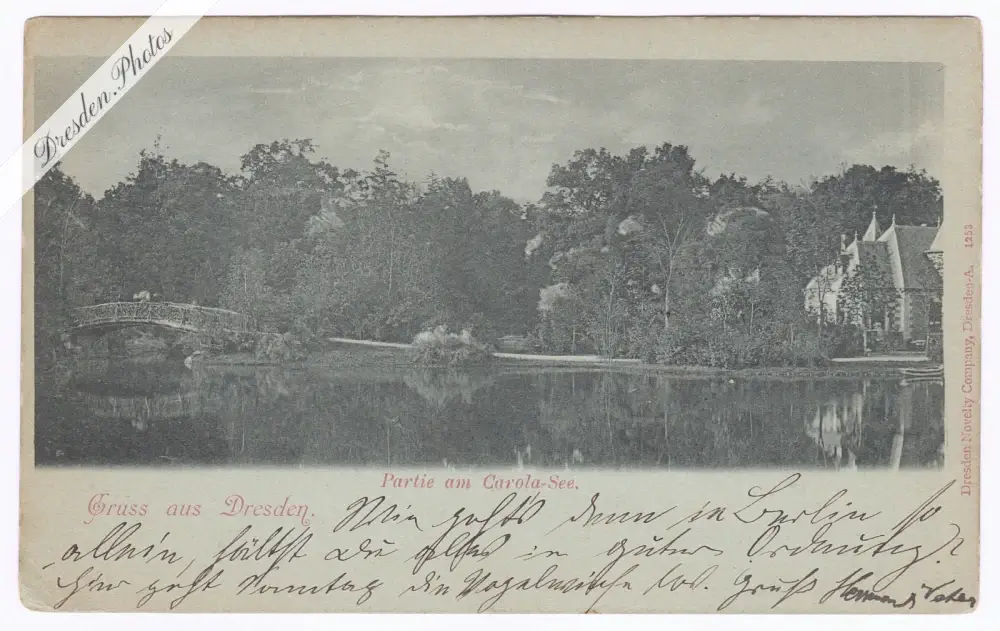 Dresden.Photos
Dresden Novelty Company, Dresden-A. 1253
Partie am Carola-See.
Gruss aus Dresden.
Wie geht's denn in Berlin so
allein, hältst Du alles in guter Ordnung?
Hier geht Sonntag die Vogelwiese los. Gruß Hermann